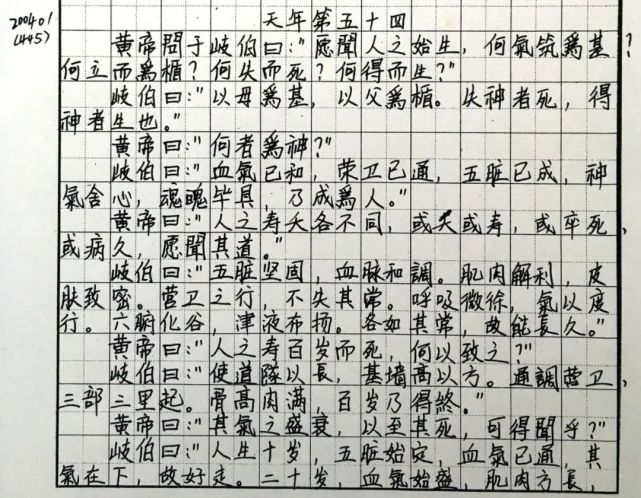 200401
(445)
天年第五十四
黄帝問于岐伯曰:"愿聞人之始生,何氣筑爲基?
何立而爲楯?何失而死?何得而生?"
岐伯曰:"以母爲基,以父爲楯。失神者死,得
神者生也。"
黄帝曰:"何者爲神?"
岐伯曰:"血氣已和,荣卫已通,五脏已成,神
氣舍心,魂魄毕具,乃成爲人。"
黄帝曰:"人之寿夭各不同,或夭或寿,或卒死,
或病久,愿聞其道。"
岐伯曰:"五脏坚固,血脉和調。肌肉解利,皮
肤致密。营卫之行,不失其常。呼吸微徐,氣以度
行。六腑化谷,津液布扬。各如其常,故能長久。"
黄帝曰:"人之寿百岁而死,何以致之?"
岐伯曰:"使道隊以長,基墙高以方。通調营卫,
三部三里起。骨高肉满,百岁乃得終。"
黄帝曰:"其氣之盛衰,以至其死,可得聞乎?"
岐伯曰:"人生十岁,五脏始定,血氣已通,其
氣在下,故好走。二十岁,血氣始盛,肌肉方長,